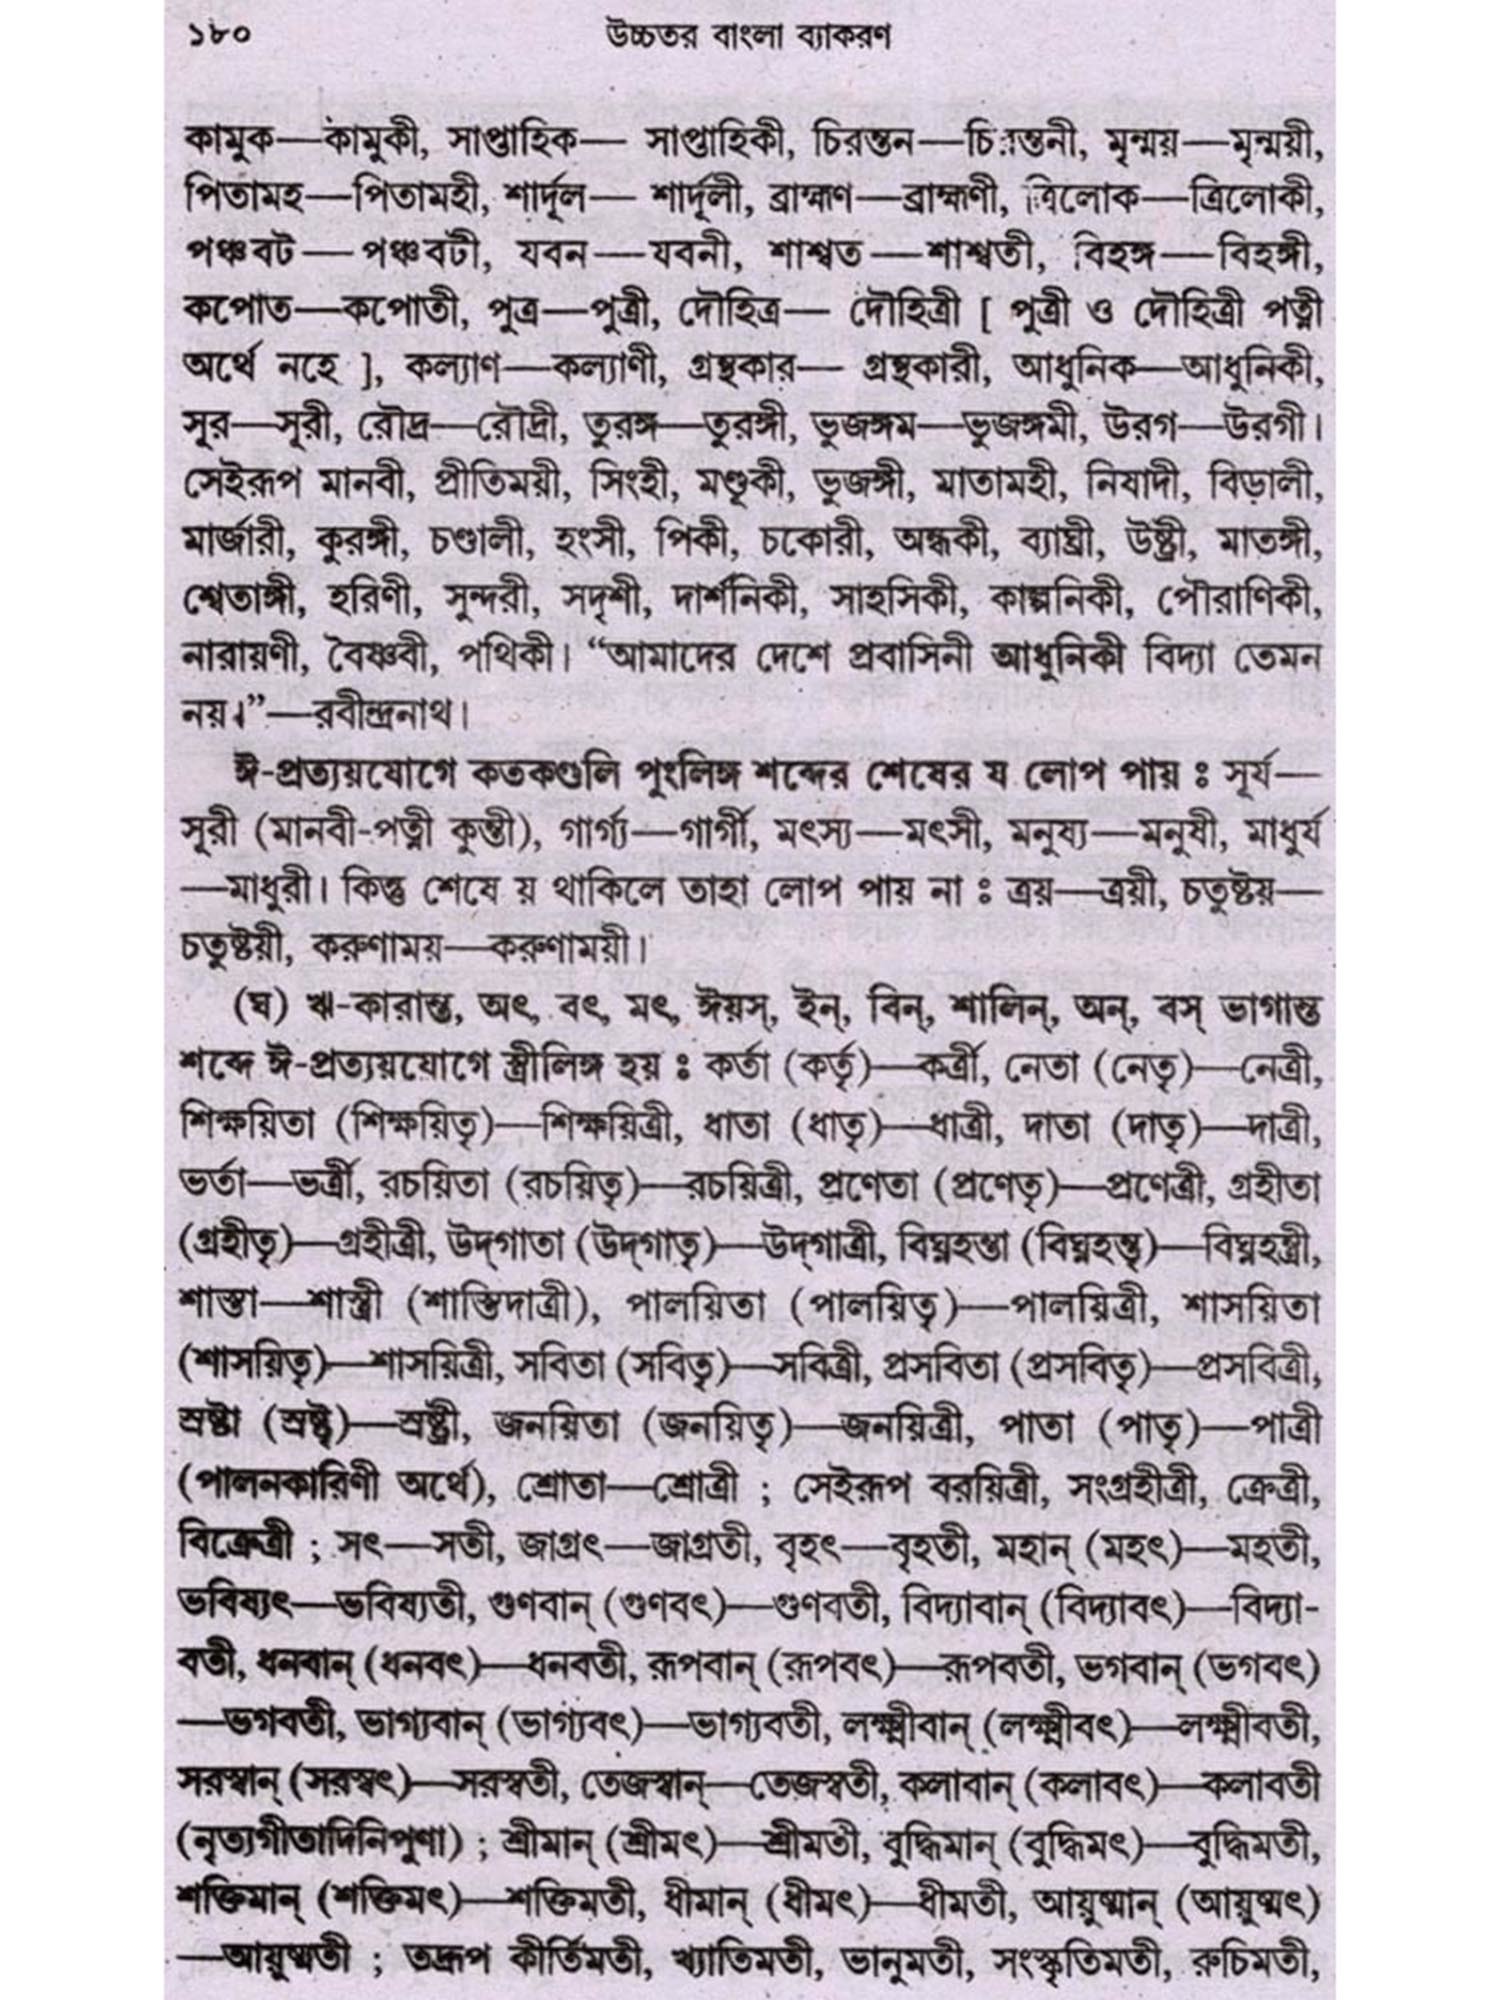 ১৮০ উচ্চতর বাংলা ব্যাকরণ
কামুক—কামুকী, সাপ্তাহিক— সাপ্তাহিকী, চিরন্তন—চিরন্তনী, মৃন্ময়—মৃন্ময়ী,
পিতামহ—পিতামহী, শার্দূল— শার্দূলী, ব্রাহ্মণ—ব্রাহ্মণী, ত্রিলোক—ত্রিলোকী,
পঞ্চবট—পঞ্চবটী, যবন—যবনী, শাশ্বত—শাশ্বতী, বিহঙ্গ—বিহঙ্গী,
কপোত—কপোতী, পুত্র—পুত্রী, দৌহিত্র— দৌহিত্রী [ পুত্রী ও দৌহিত্রী পত্নী
অর্থে নহে ], কল্যাণ—কল্যাণী, গ্রন্থকার— গ্রন্থকারী, আধুনিক—আধুনিকী,
সূর—সূরী, রৌদ্র—রৌদ্রী, তুরঙ্গ—তুরঙ্গী, ভুজঙ্গম—ভুজঙ্গমী, উরগ—উরগী।
সেইরূপ মানবী, প্রীতিময়ী, সিংহী, মণ্ডূকী, ভুজঙ্গী, মাতামহী, নিষাদী, বিড়ালী,
মার্জারী, কুরঙ্গী, চণ্ডালী, হংসী, পিকী, চকোরী, অন্ধকী, ব্যাঘ্রী, উষ্ট্রী, মাতঙ্গী,
শ্বেতাঙ্গী, হরিণী, সুন্দরী, সদৃশী, দার্শনিকী, সাহসিকী, কাল্পনিকী, পৌরাণিকী,
নারায়ণী, বৈষ্ণবী, পথিকী। “আমাদের দেশে প্রবাসিনী আধুনিকী বিদ্যা তেমন
নয়।”—রবীন্দ্রনাথ।
ঈ-প্রত্যয়যোগে কতকগুলি পুংলিঙ্গ শব্দের শেষের য লোপ পায় ঃ সূর্য—
সূরী (মানবী-পত্নী কুন্তী), গার্গ্য—গার্গী, মৎস্য—মৎসী, মনুষ্য—মনুষী, মাধুর্য
—মাধুরী। কিন্তু শেষে য় থাকিলে তাহা লোপ পায় না ঃ ত্রয়—ত্রয়ী, চতুষ্টয়—
চতুষ্টয়ী, করুণাময়—করুণাময়ী।
(ঘ) ঋ-কারান্ত, অৎ, বৎ, মৎ, ঈয়স্, ইন্, বিন্, শালিন্, অন্, বস্ ভাগান্ত
শব্দে ঈ-প্রত্যয়যোগে স্ত্রীলিঙ্গ হয় ঃ কর্তা (কর্তৃ)—কর্ত্রী, নেতা (নেতৃ)—নেত্রী,
শিক্ষয়িতা (শিক্ষয়িতৃ)—শিক্ষয়িত্রী, ধাতা (ধাতৃ)—ধাত্রী, দাতা (দাতৃ)—দাত্রী,
ভর্তা—ভর্ত্রী, রচয়িতা (রচয়িতৃ)—রচয়িত্রী, প্রণেতা (প্রণেতৃ)—প্রণেত্রী, গ্রহীতা
(গ্রহীতৃ)—গ্রহীত্রী, উদ্‌গাতা (উদ্‌গাতৃ)—উদ্‌গাত্রী, বিঘ্নহন্তা (বিঘ্নহন্তৃ)—বিঘ্নহন্ত্রী,
শাস্তা—শাস্ত্রী (শাস্তিদাত্রী), পালয়িতা (পালয়িতৃ)—পালয়িত্রী, শাসয়িতা
(শাসয়িতৃ)—শাসয়িত্রী, সবিতা (সবিতৃ)—সবিত্রী, প্রসবিতা (প্রসবিতৃ)—প্রসবিত্রী,
স্রষ্টা (স্রষ্টৃ)—স্রষ্ট্রী, জনয়িতা (জনয়িতৃ)—জনয়িত্রী, পাতা (পাতৃ)—পাত্রী
(পালনকারিণী অর্থে), শ্রোতা—শ্রোত্রী ; সেইরূপ বরয়িত্রী, সংগ্রহীত্রী, ক্রেত্রী,
বিক্রেত্রী ; সৎ—সতী, জাগ্রৎ—জাগ্রতী, বৃহৎ—বৃহতী, মহান্ (মহৎ)—মহতী,
ভবিষ্যৎ—ভবিষ্যতী, গুণবান্ (গুণবৎ)—গুণবতী, বিদ্যাবান্ (বিদ্যাবৎ)—বিদ্যা-
বতী, ধনবান্ (ধনবৎ)—ধনবতী, রূপবান্ (রূপবৎ)—রূপবতী, ভগবান্ (ভগবৎ)
—ভগবতী, ভাগ্যবান্ (ভাগ্যবৎ)—ভাগ্যবতী, লক্ষ্মীবান্ (লক্ষ্মীবৎ)—লক্ষ্মীবতী,
সরস্বান্ (সরস্বৎ)—সরস্বতী, তেজস্বান্—তেজস্বতী, কলাবান্ (কলাবৎ)—কলাবতী
(নৃত্যগীতাদিনিপুণা) ; শ্রীমান্ (শ্রীমৎ)—শ্রীমতী, বুদ্ধিমান্ (বুদ্ধিমৎ)—বুদ্ধিমতী,
শক্তিমান্ (শক্তিমৎ)—শক্তিমতী, ধীমান্ (ধীমৎ)—ধীমতী, আয়ুষ্মান্ (আয়ুষ্মৎ)
—আয়ুষ্মতী ; তদ্রূপ কীর্তিমতী, খ্যাতিমতী, ভানুমতী, সংস্কৃতিমতী, রুচিমতী,